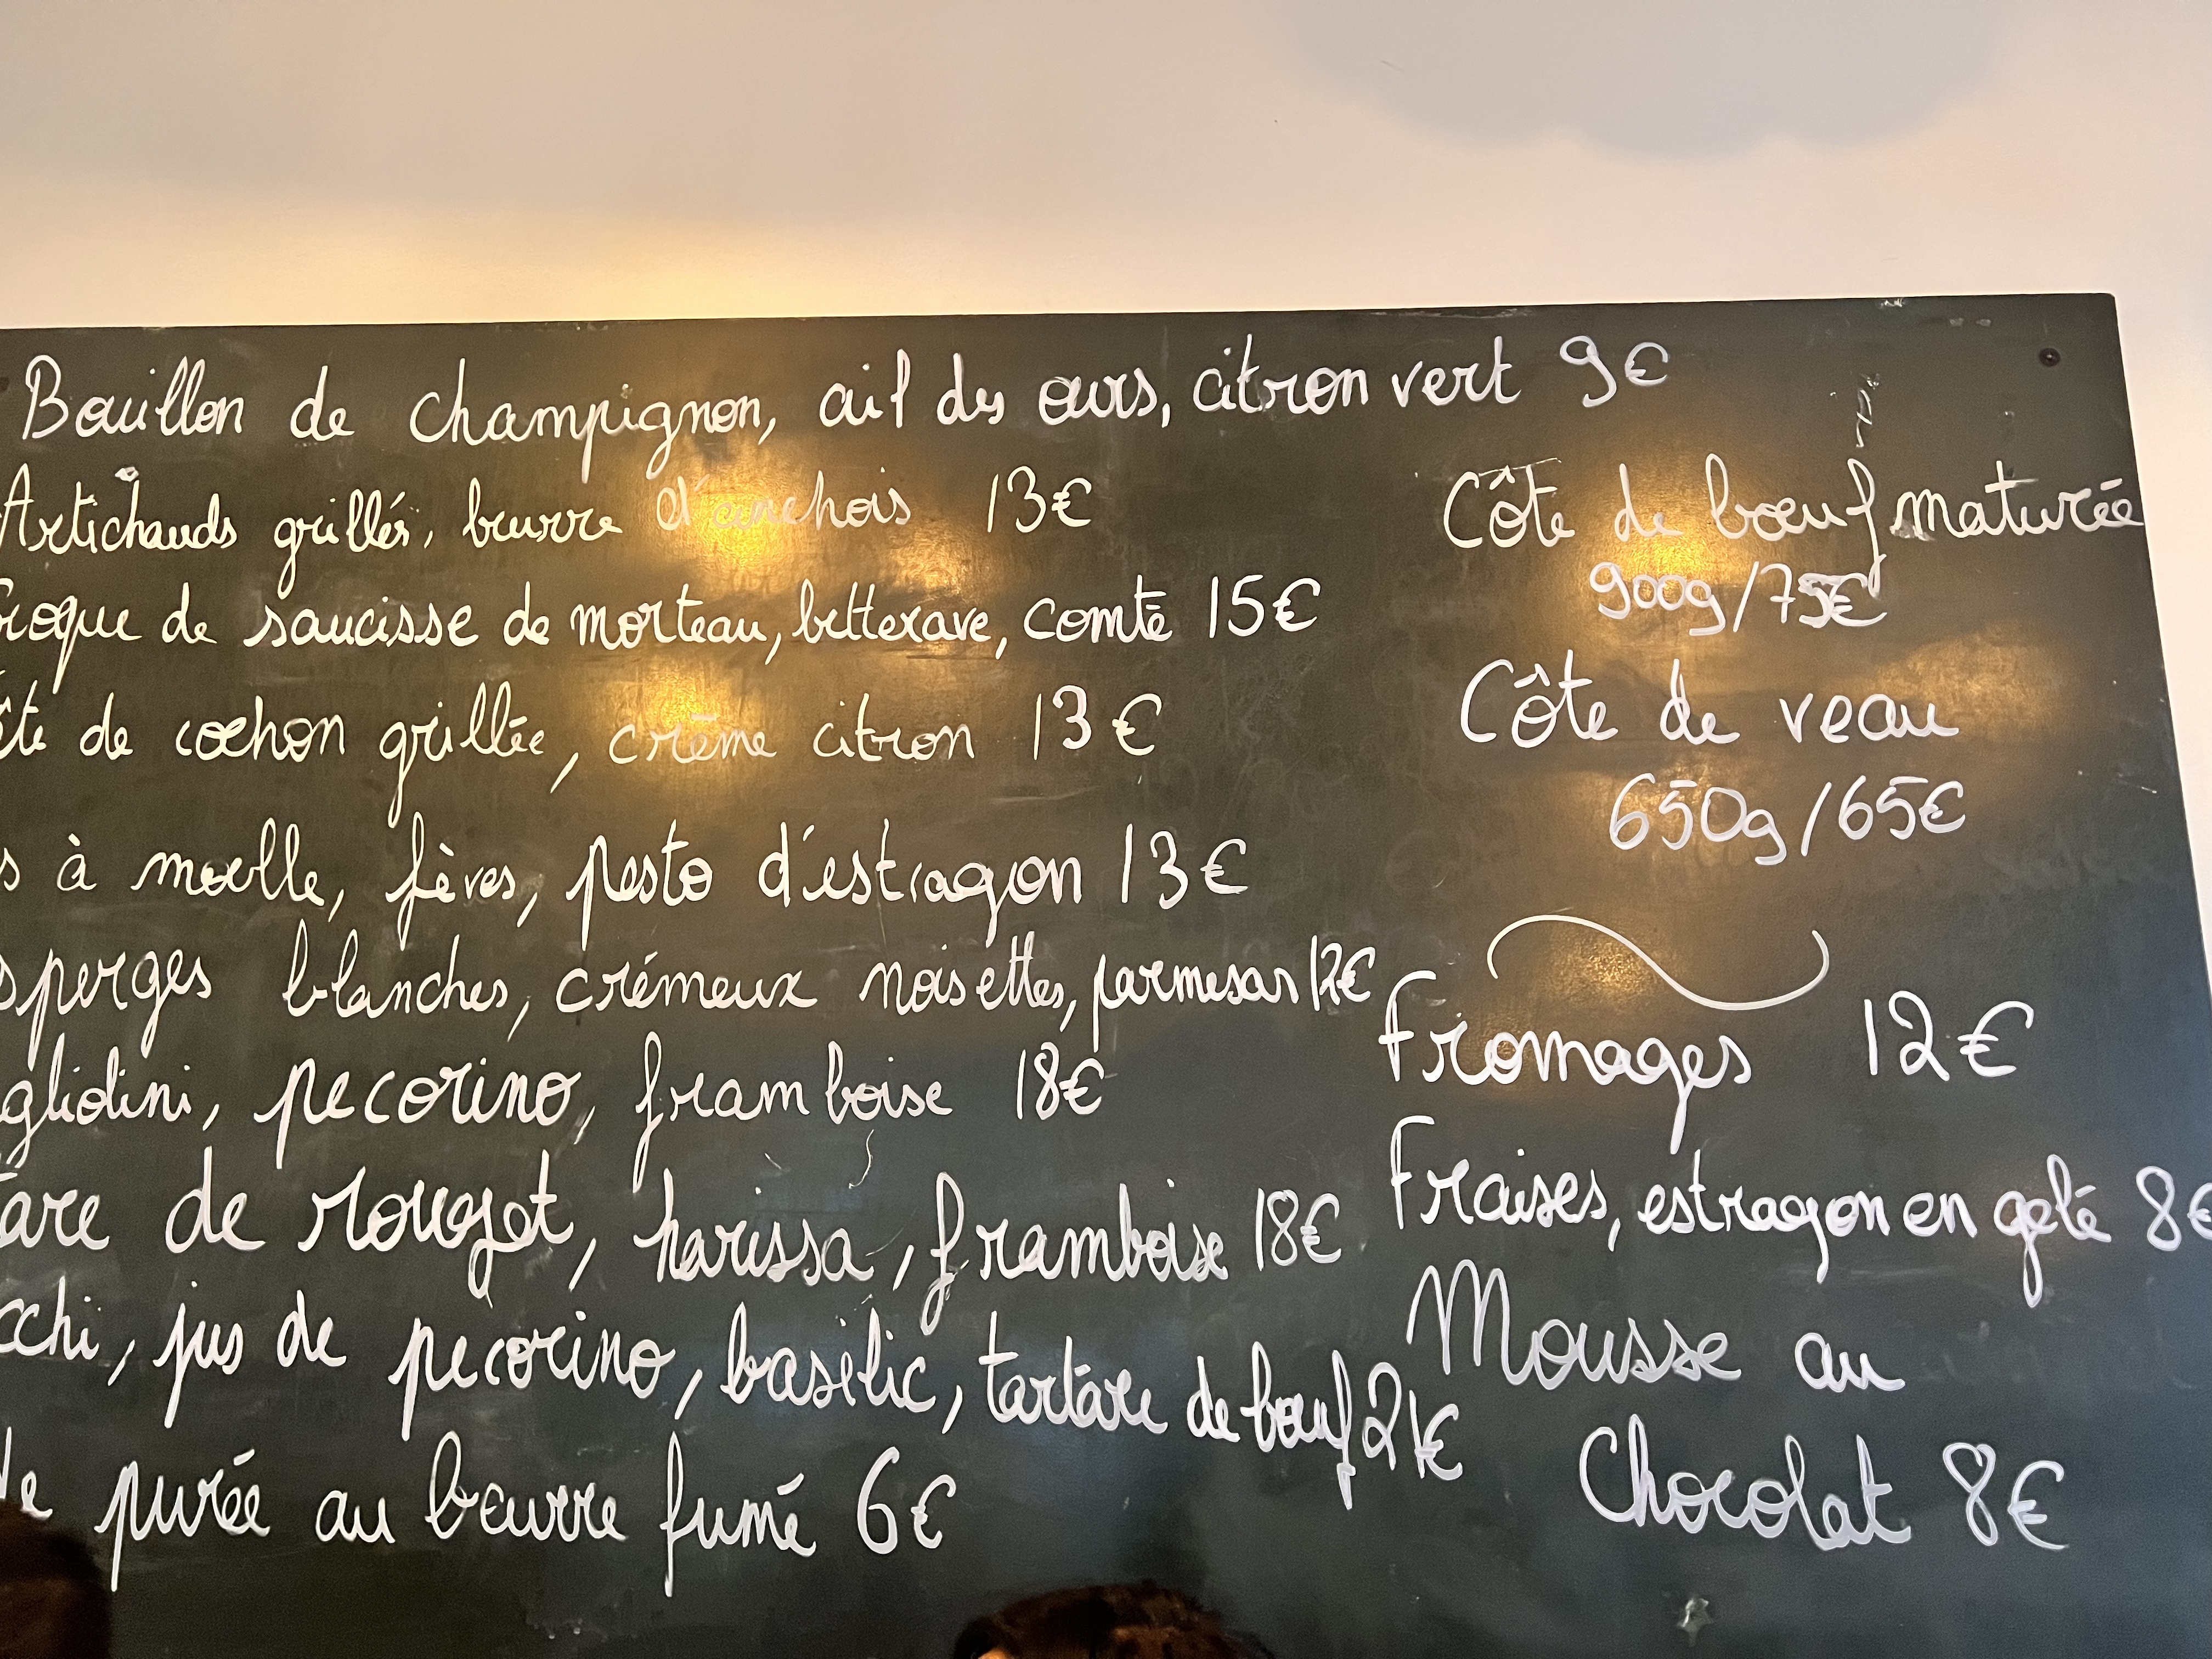 Bouillon de champignon, ail des ours, citron vert 9€
Artichauds grillés, beurre d'anchois 13€
roque de saucisse de morteau, betterave, comté 15€
ête de cochon grillée, crème citron 13€
s à moelle, fèves, pesto d'estragon 13€
sperges blanches, crémeux noisettes, parmesan 12€
gliolini, pecorino, framboise 18€
tare de rouget, harissa, framboise 18€
cchi, jus de pecorino, basilic, tartare de bœuf 21€
de purée au beurre fumé 6€
Côte de bœuf maturée
900g/75€
Côte de veau
650g/65€
Fromages 12€
Fraises, estragon en gelé 8€
Mousse au
Chocolat 8€